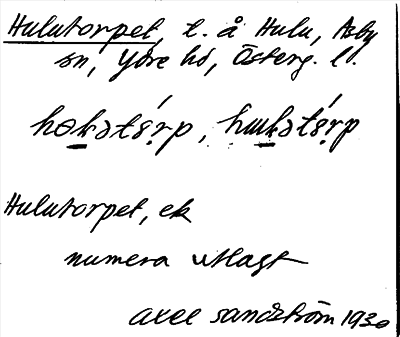 Hulutorpet, t. å Hulu, Asby
sn, Ydre hd, Österg. l.
Hulutorpet, ek
numera utlagt
Axel Sandström 1930